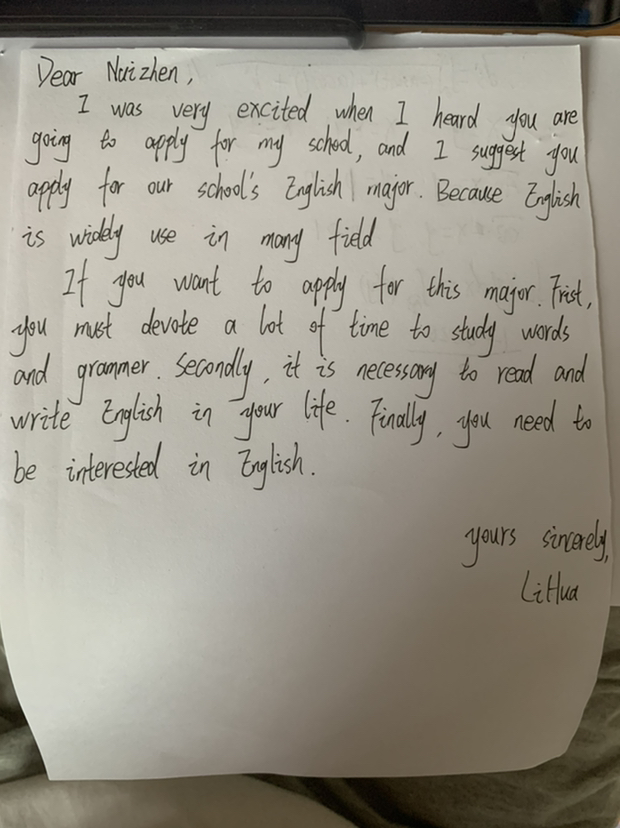 Dear Nuizhen,
I was very excited when I heard you are
going to apply for my school, and I suggest you
apply for our school's English major. Because English
is widely use in many field
If you want to apply for this major. Frist,
you must devote a lot of time to study words
and grammer. Secondly, it is necessary to read and
write English in your life. Finally, you need to
be interested in English.
yours sincerely,
LiHua